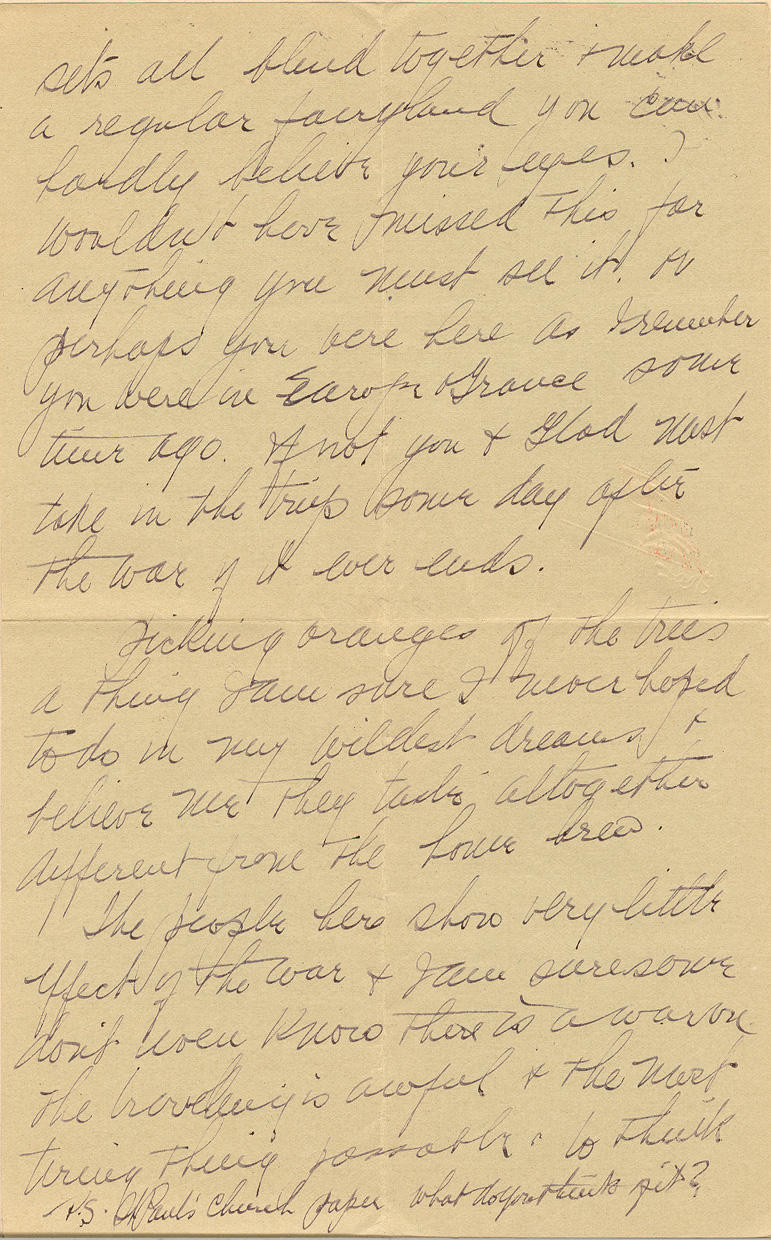 sets all blend together & make
a regular fairyland you can
hardly believe your eyes. I
wouldn't have missed this for
anything you must see it. or
perhaps you were here as I remember
you were in Europe & France some
time ago. If not you & Glad must
take in the trip some day after
the war if it ever ends.
Picking oranges off the trees
a thing I am sure I never hoped
to do in my wildest dreams &
believe me they taste altogether
different from the home brew.
The people here show very little
effect of the war & I am sure some
don't even know there is a war on
the travelling is awful & the most
tiring thing possable. to think
P.S. St Paul's Church paper what do you think of it?